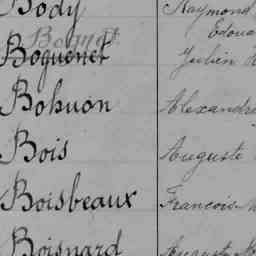 Body Raymond
Edoua
Boguenet Julien
Bohuon Alexandre
Bois Auguste
Boisbeaux Francois M
Boisnard Auguste